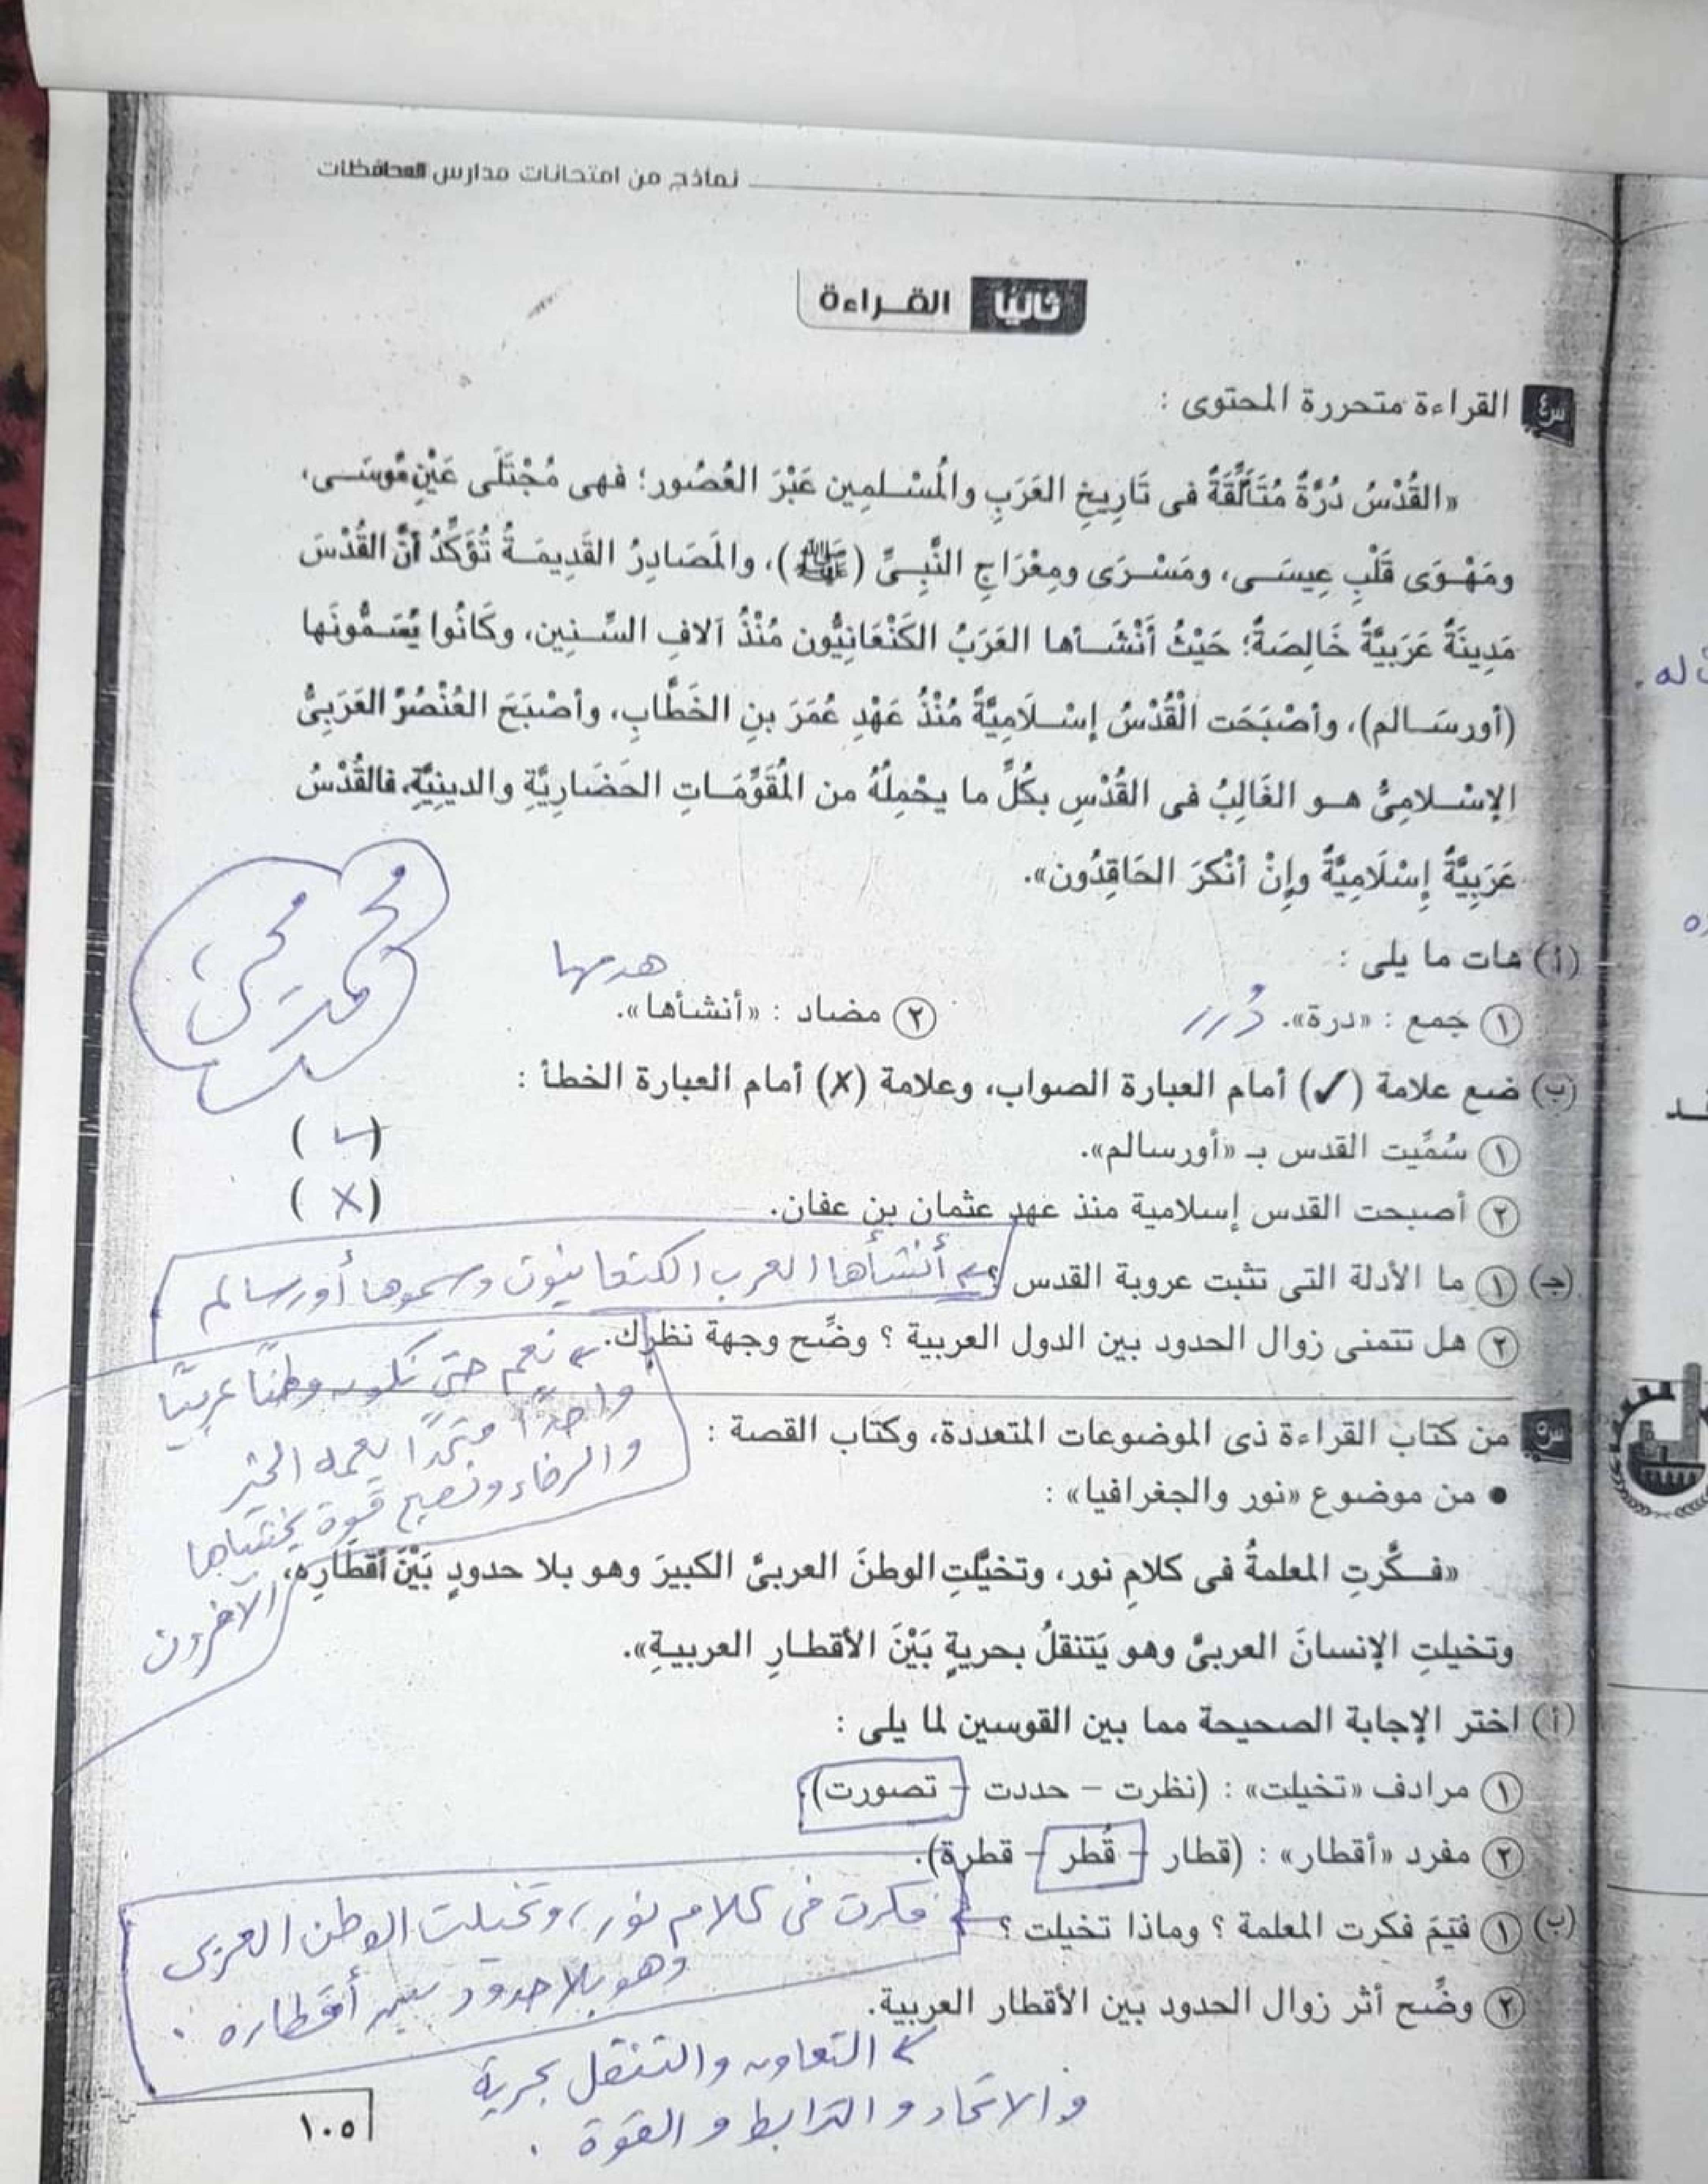 نماذج من امتحانات مدارس المحافظات
ثانيًا القـــراءة
س٤ القراءة متحررة المحتوى :
«القُدْسُ دُرَّةٌ مُتَأَلِّقَةٌ فى تَارِيخِ العَرَبِ والمُسْـلمِين عَبْرَ العُصُور؛ فهى مُجْتَلَى عَيْنِ مُوسَـى،
ومَهْـوَى قَلْبِ عِيسَـى، ومَسْـرَى ومِعْرَاجِ النَّبِـىِّ (ﷺ)، والمَصَادِرُ القَدِيمَـةُ تُؤَكِّدُ أَنَّ القُدْسَ
مَدِينَةٌ عَرَبِيَّةٌ خَالِصَةٌ؛ حَيْثُ أَنْشَـأها العَرَبُ الكَنْعَانِيُّون مُنْذُ آلافِ السِّـنِين، وكَانُوا يُسَـمُّونَها
(أورسَـالم)، وأصْبَحَت الْقُدْسُ إسْـلَامِيَّةً مُنْذُ عَهْدِ عُمَرَ بنِ الخَطَّابِ، وأصْبَحَ العُنْصُرُ العَرَبِىُّ
الإسْـلامِىُّ هـو الغَالِبُ فى القُدْسِ بكُلِّ ما يحْمِلُهُ من المُقَوِّمَـاتِ الحَضَارِيَّةِ والدينِيَّةِ، فالقُدْسُ
عَرَبِيَّةٌ إسْلَامِيَّةٌ وإنْ أنْكَرَ الحَاقِدُون».
(أ) هات ما يلى :
١ جمع : «درة». دُرر
٢ مضاد : «أنشأها». هدمها
(ب) ضع علامة (✓) أمام العبارة الصواب، وعلامة (✗) أمام العبارة الخطأ :
١ سُمِّيت القدس بـ «أورسالم». (✓)
٢ أصبحت القدس إسلامية منذ عهد عثمان بن عفان. (✗)
(جـ) ١ ما الأدلة التى تثبت عروبة القدس ؟ أنشأها العرب الكنعانيون وسموها أورسالم
٢ هل تتمنى زوال الحدود بين الدول العربية ؟ وضِّح وجهة نظرك. نعم حتى نكون وطنًا عربيًا
واحدًا متحدًا يعمه الخير
والرخاء ونصبح قوة يخشاها
الآخرون
س٥ من كتاب القراءة ذى الموضوعات المتعددة، وكتاب القصة :
● من موضوع «نور والجغرافيا» :
«فـكَّرتِ المعلمةُ فى كلامِ نور، وتخيَّلتِ الوطنَ العربىَّ الكبيرَ وهو بلا حدودٍ بَيْنَ أقْطَارِه،
وتخيلتِ الإنسانَ العربىَّ وهو يَتنقلُ بحريةٍ بَيْنَ الأقطـارِ العربيـةِ».
(أ) اختر الإجابة الصحيحة مما بين القوسين لما يلى :
١ مرادف «تخيلت» : (نظرت – حددت – تصورت).
٢ مفرد «أقطار» : (قطار – قُطر – قطرة).
(ب) ١ فيمَ فكرت المعلمة ؟ وماذا تخيلت ؟ فكرت فى كلام نور، وتخيلت الوطن العربى
وهو بلا حدود بين أقطاره .
٢ وضِّح أثر زوال الحدود بين الأقطار العربية.
التعاون والتنقل بحرية
والاتحاد والترابط والقوة .
١٠٥